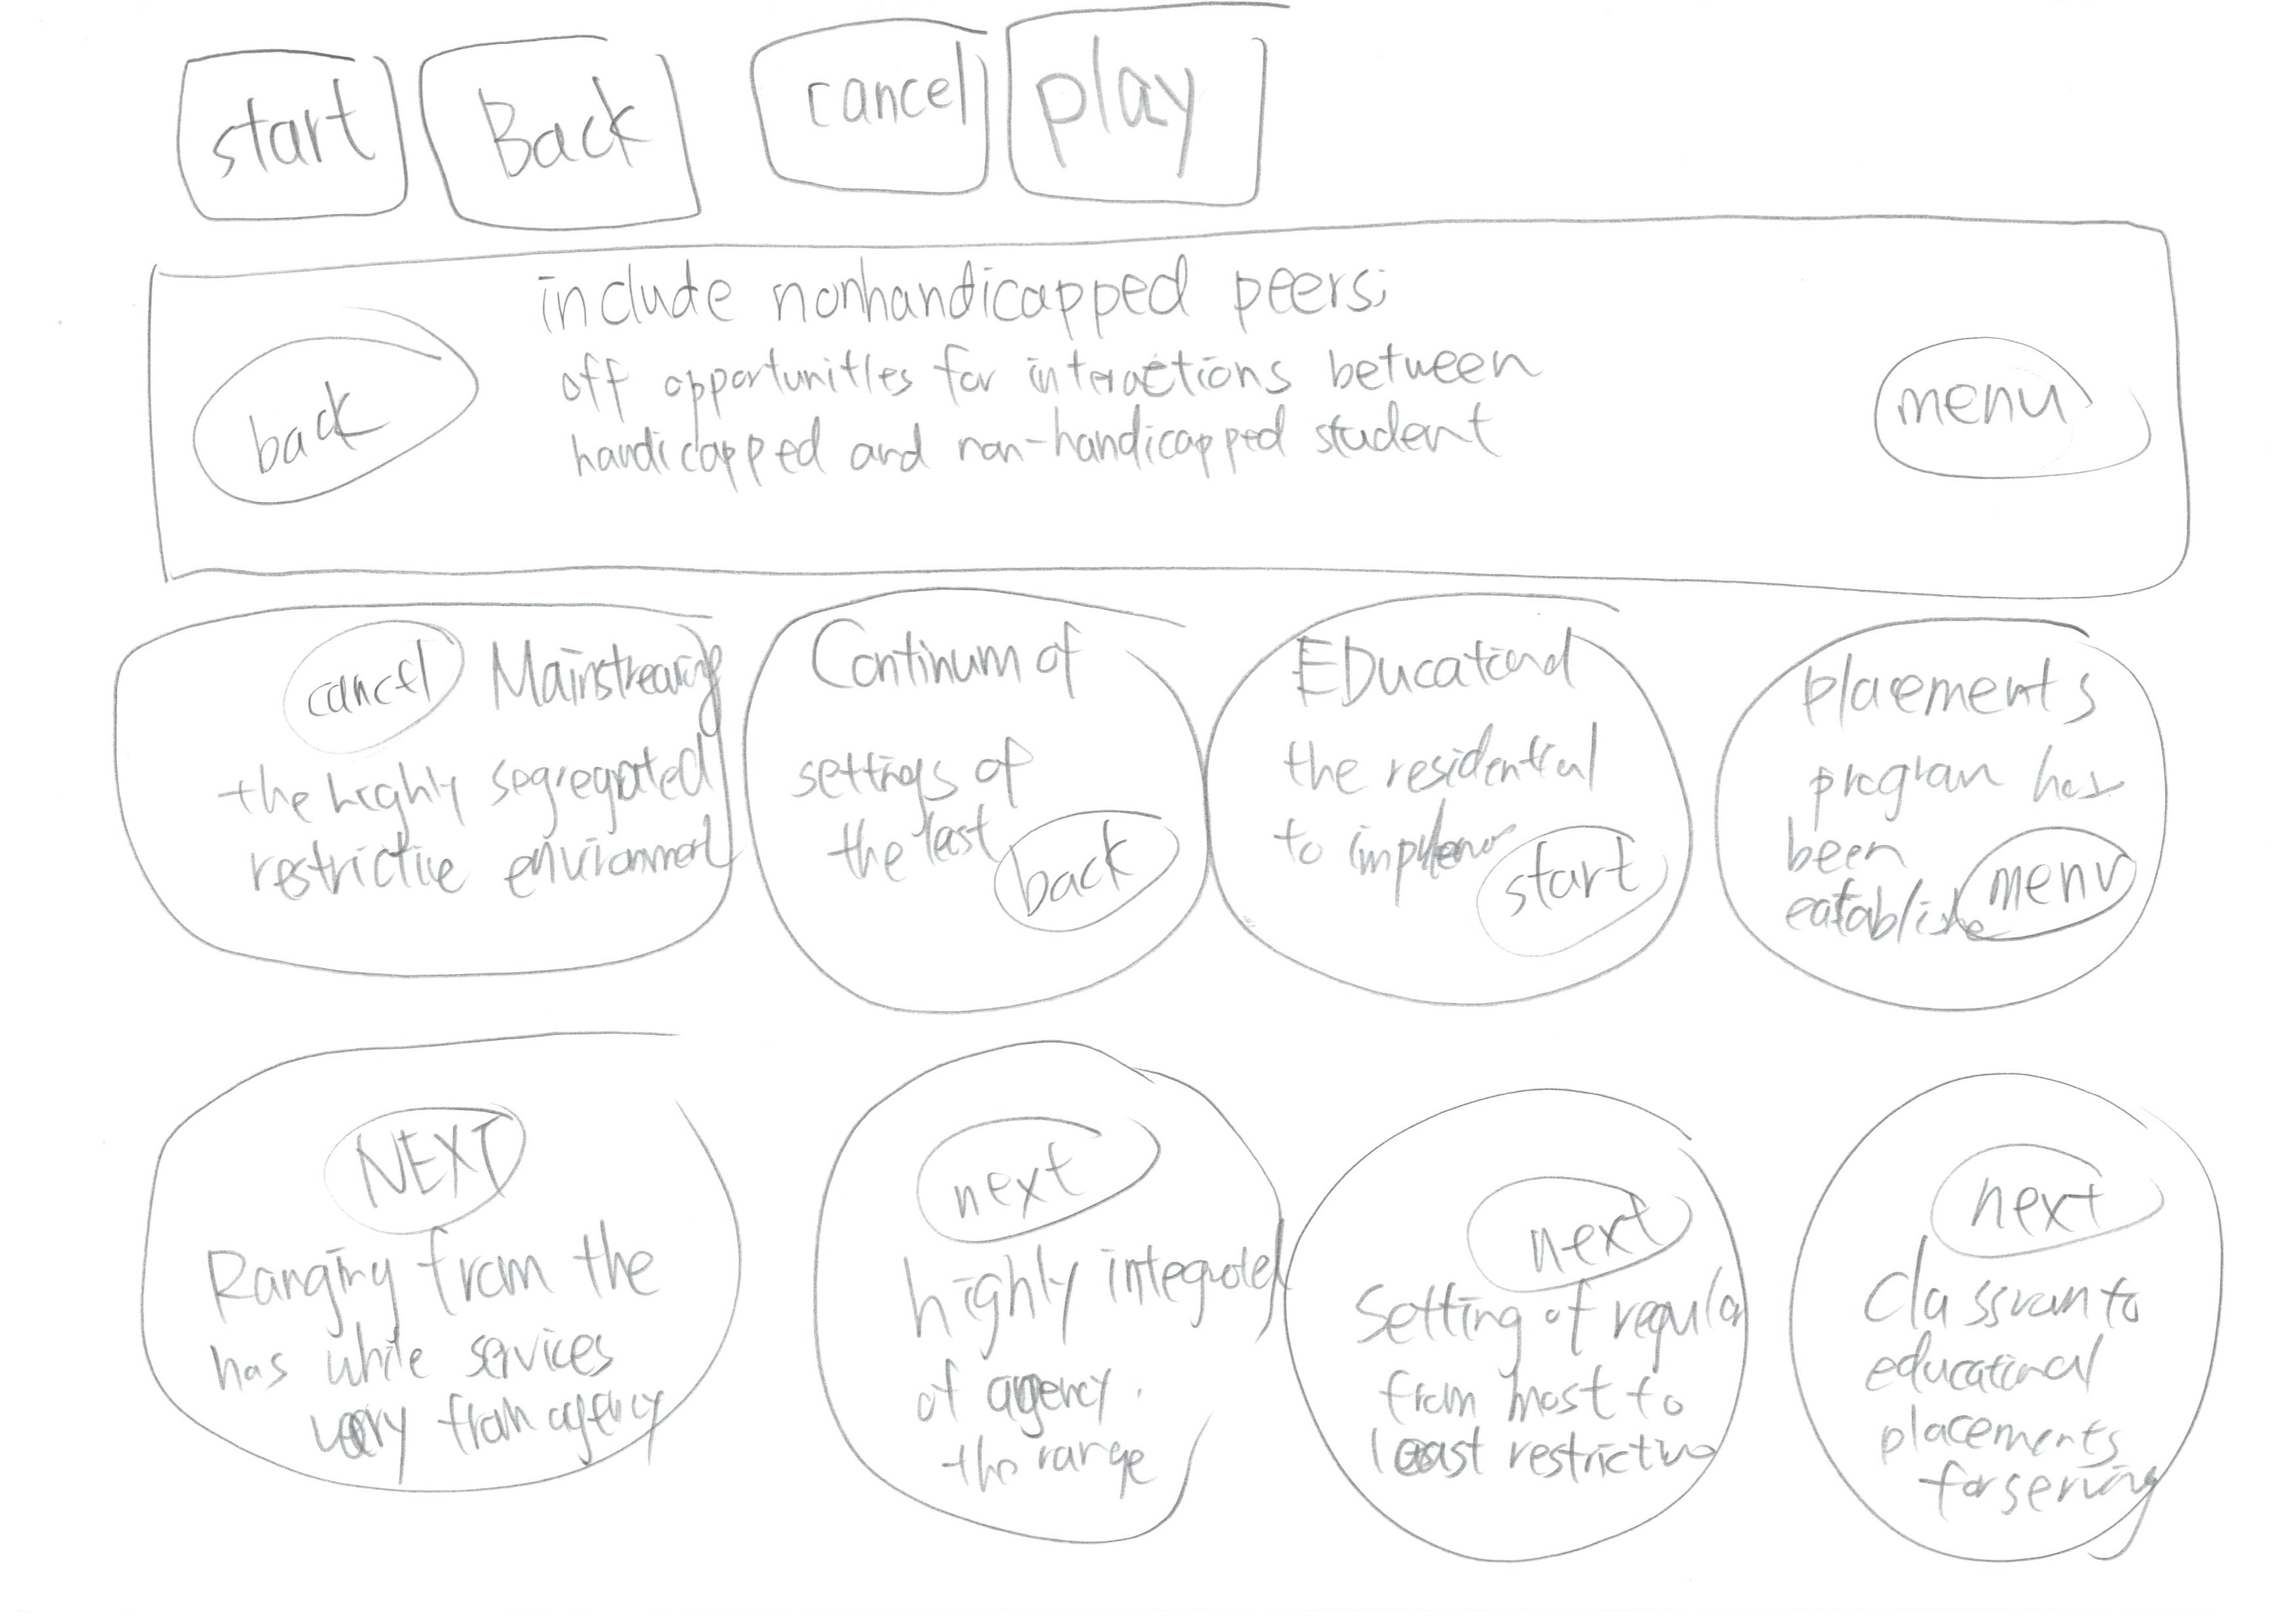 start
Back
cancel
play
include nonhandicapped peers;
off opportunitles for interactions between
handicapped and non-handicapped student
back
menu
cancel
Mainstreaming
the highly segregated
restrictive environment
Continum of
settings of
the last
back
EDucational
the residential
to implemen
start
placements
program has
been
eatablishe
menu
NEXT
Ranging from the
has while services
very from agency
next
highly integrated
of agency.
the range
next
Setting of regular
from most to
least restrictive
next
Classroom to
educational
placements
for serving